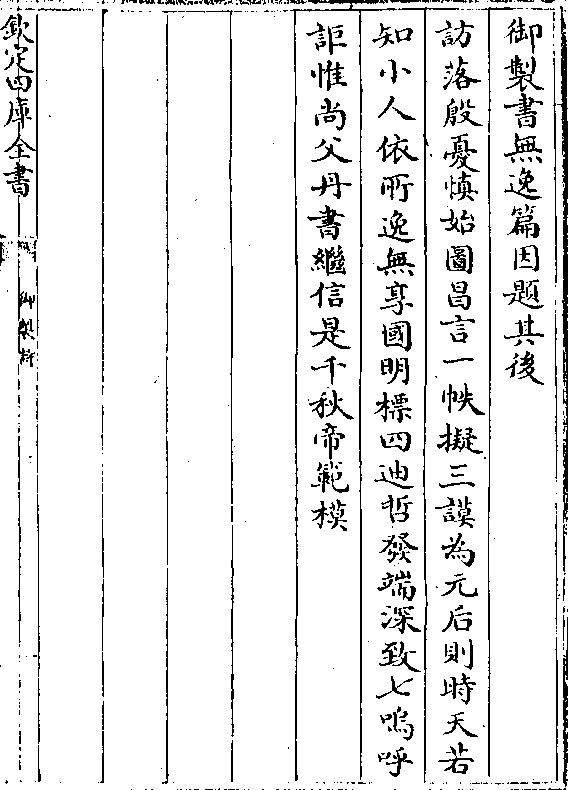 御製書無逸篇因題其後
訪落殷憂慎始圖昌言一帙擬三謨為元后則時天若
知小人依所逸無享國明標四迪哲發端深致七嗚呼
詎惟尚父丹書繼信是千秋帝範模
欽定四庫全書